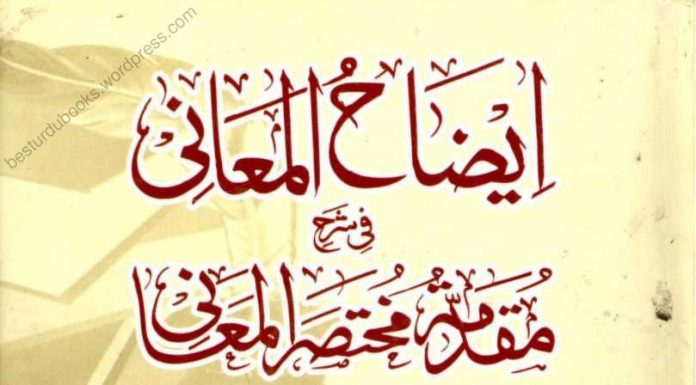 besturdubooks.wordpress.com
إيضاحُ المعاني
في شرح
مُقدمة مُختصر المعاني